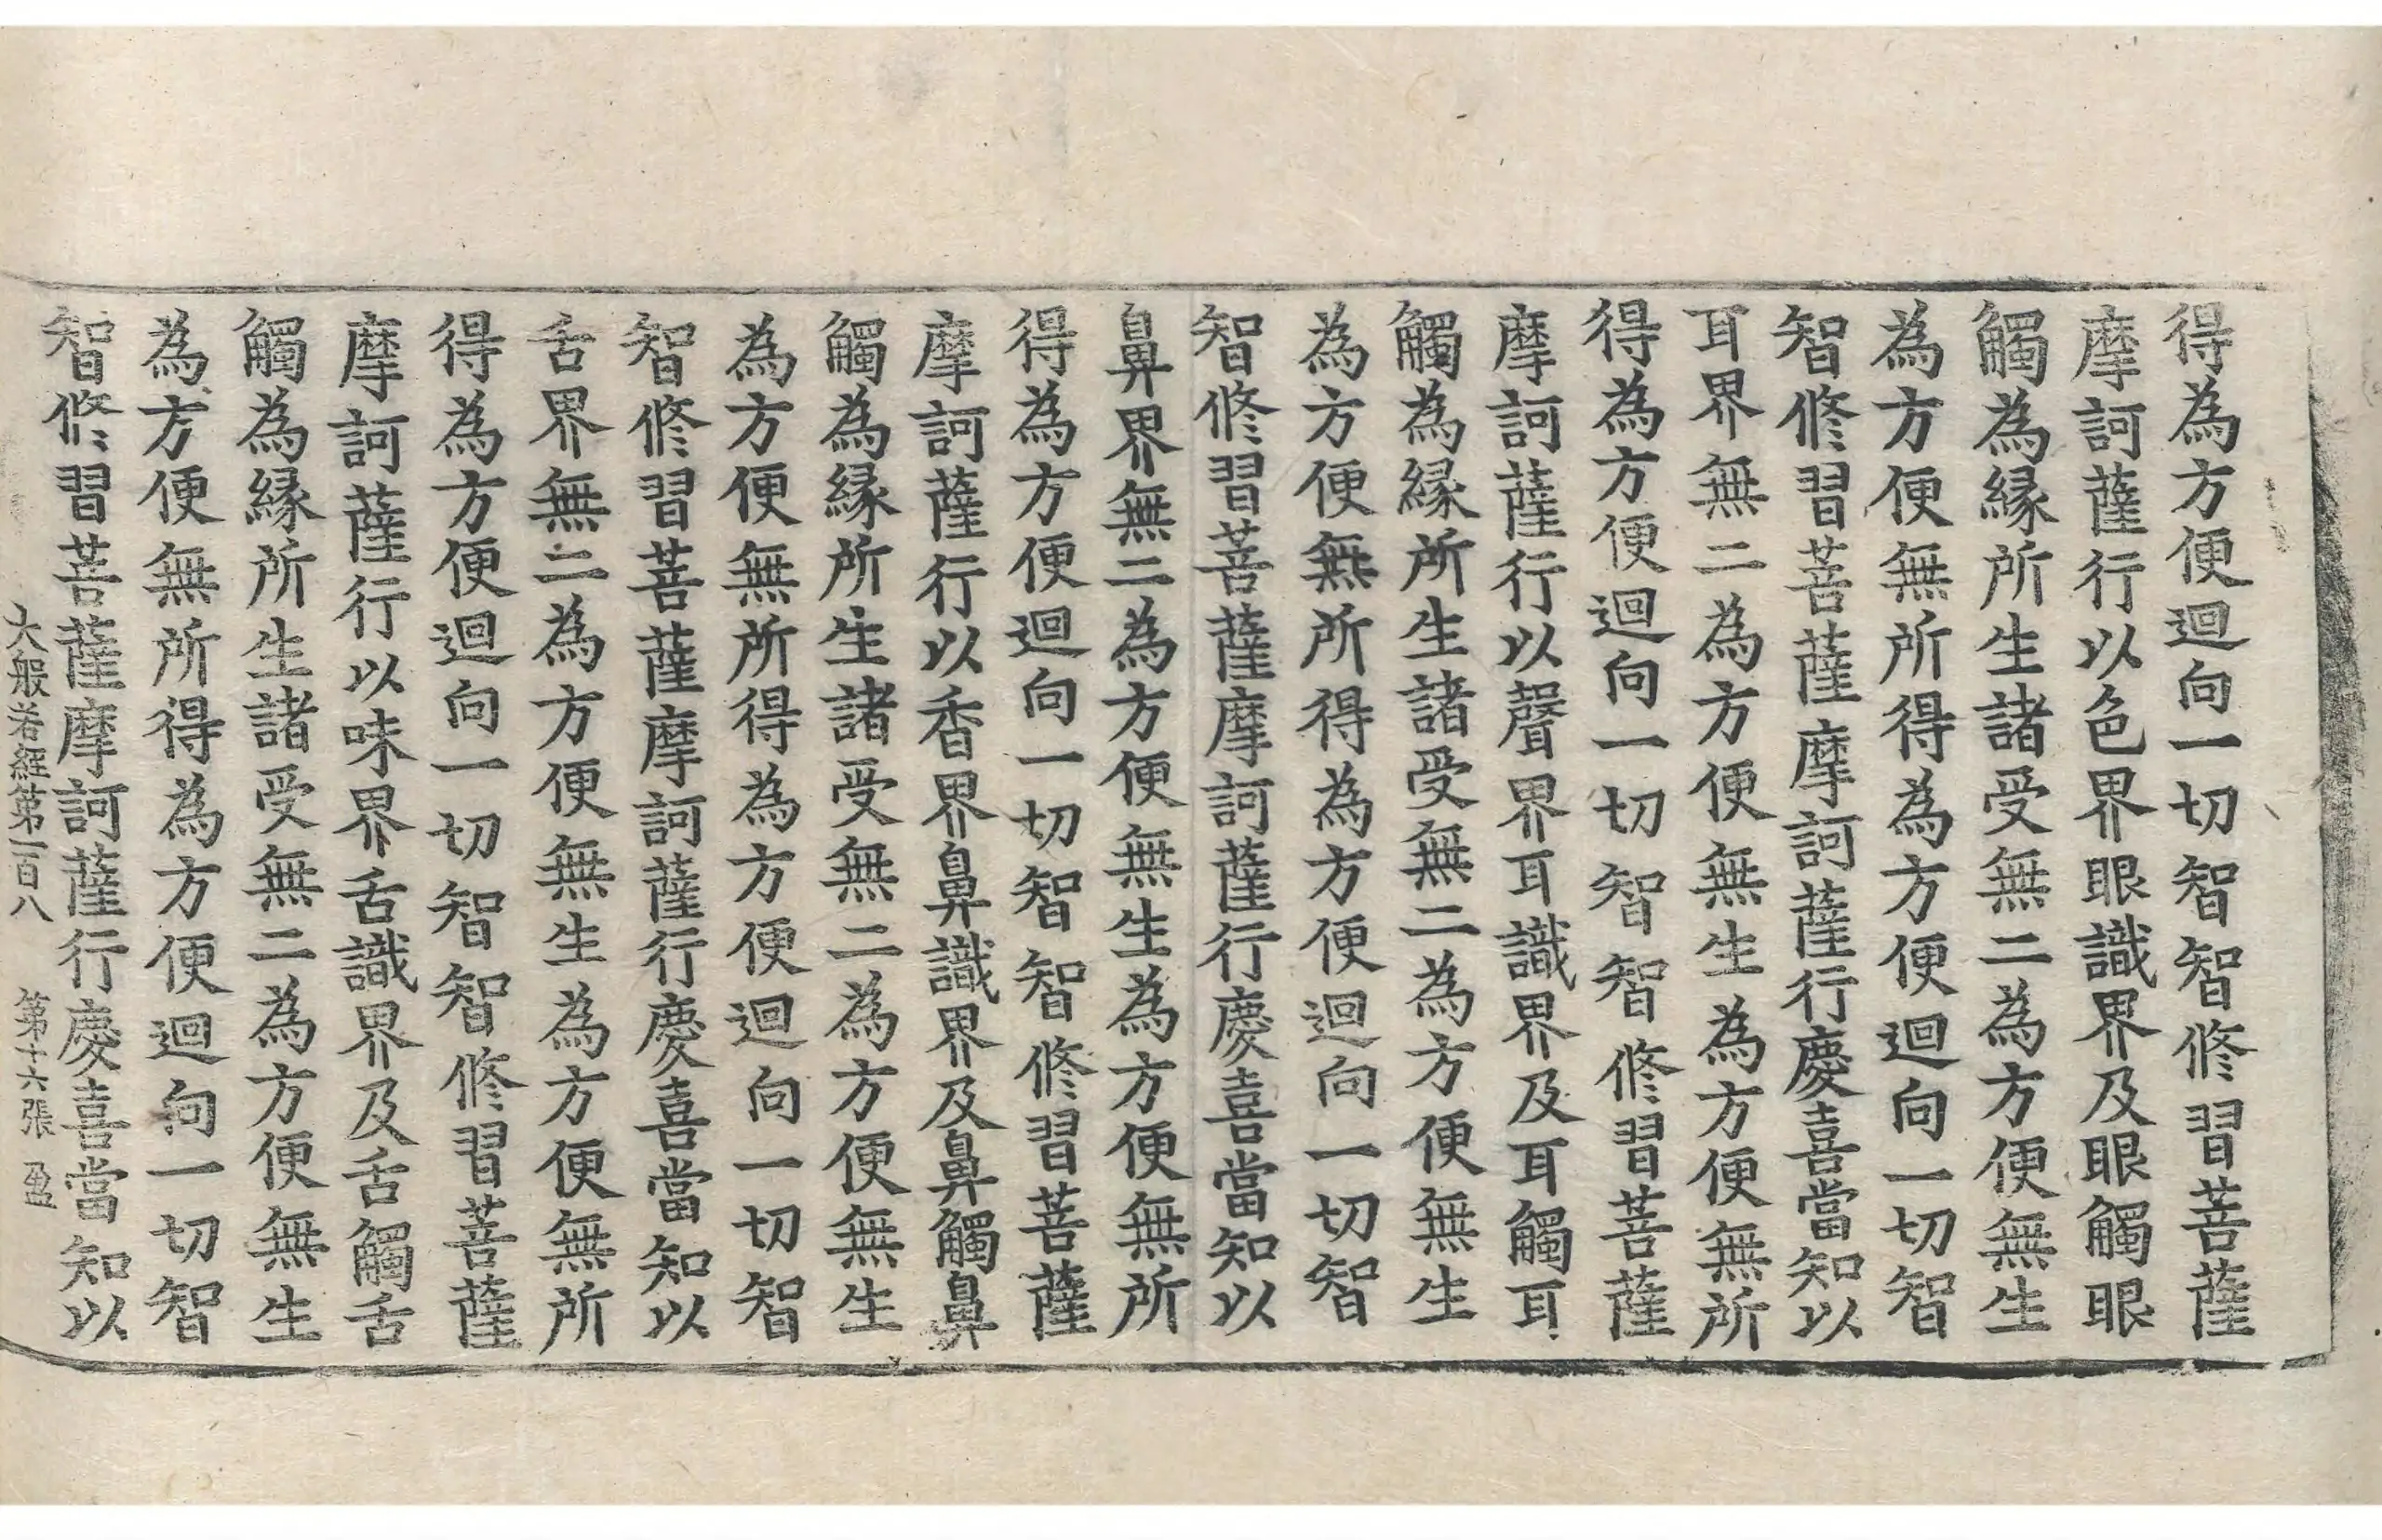 得為方便迴向一切智智修習菩薩
摩訶薩行以色界眼識界及眼觸眼
觸為緣所生諸受無二為方便無生
為方便無所得為方便迴向一切智
智修習菩薩摩訶薩行慶喜當知以
耳界無二為方便無生為方便無所
得為方便迴向一切智智修習菩薩
摩訶薩行以聲界耳識界及耳觸耳
觸為緣所生諸受無二為方便無生
為方便無所得為方便迴向一切智
智修習菩薩摩訶薩行慶喜當知以
鼻界無二為方便無生為方便無所
得為方便迴向一切智智修習菩薩
摩訶薩行以香界鼻識界及鼻觸鼻
觸為緣所生諸受無二為方便無生
為方便無所得為方便迴向一切智
智修習菩薩摩訶薩行慶喜當知以
舌界無二為方便無生為方便無所
得為方便迴向一切智智修習菩薩
摩訶薩行以味界舌識界及舌觸舌
觸為緣所生諸受無二為方便無生
為方便無所得為方便迴向一切智
智修習菩薩摩訶薩行慶喜當知以
大般若經第一百八 第十六張 盈